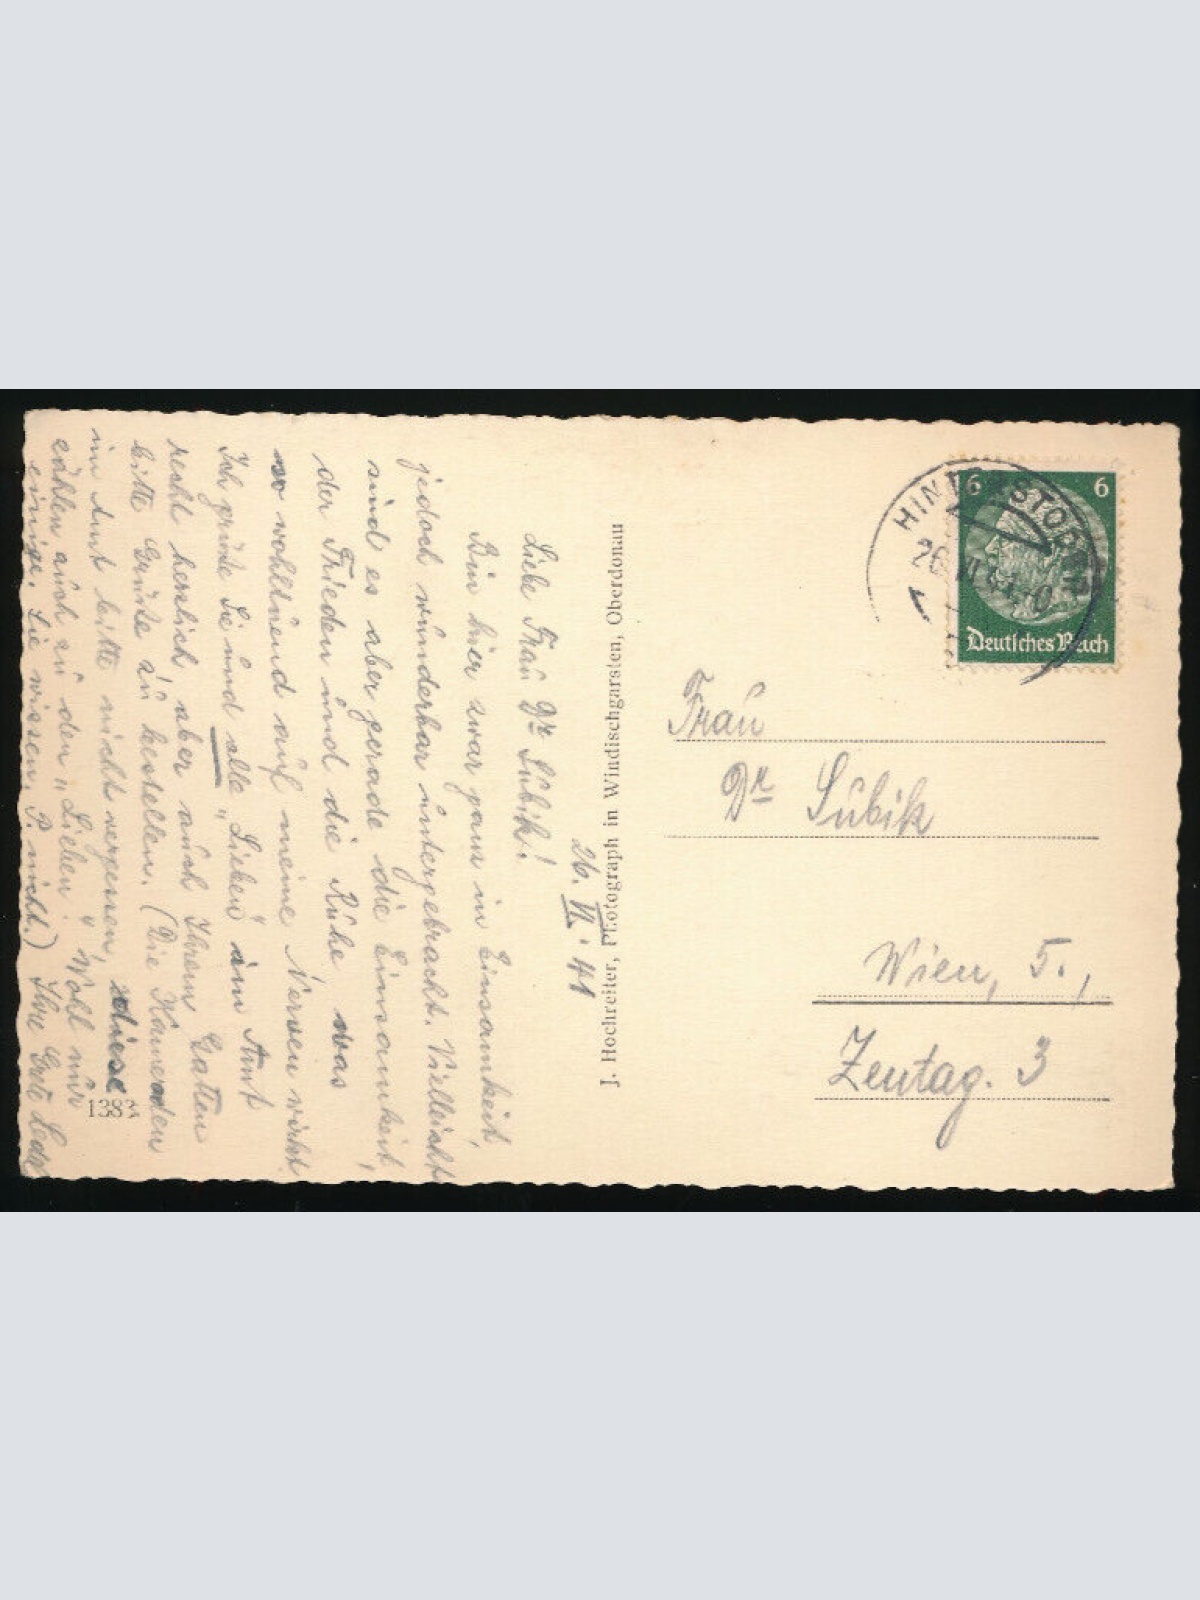 26. VI. 41
Liebe Frau Dr. Subik!
Bin hier zwar ganz in Einsamkeit,
jedoch wunderbar untergebracht. Vielleicht
sind es aber gerade die Einsamkeit,
der Frieden und die Ruhe, was
so wohltuend auf meine Nerven wirkt.
Ich grüße Sie und alle "Lieben" im Amt
recht herzlich, aber auch Ihrem Gatten
bitte Grüße zu bestellen. (Die Kameraden
im Amt bitte nicht vergessen, diese
zählen auch zu den "Lieben". Wohl nur
einige. Sie wissen, P. nicht.) Ihre Grete
1383
J. Hochreiter, Photograph in Windischgarsten, Oberdonau
HINTERSTODER
26.VI.41
6 6
Deutsches Reich
Frau
Dr. Subik
Wien, 5.,
Zentag. 3